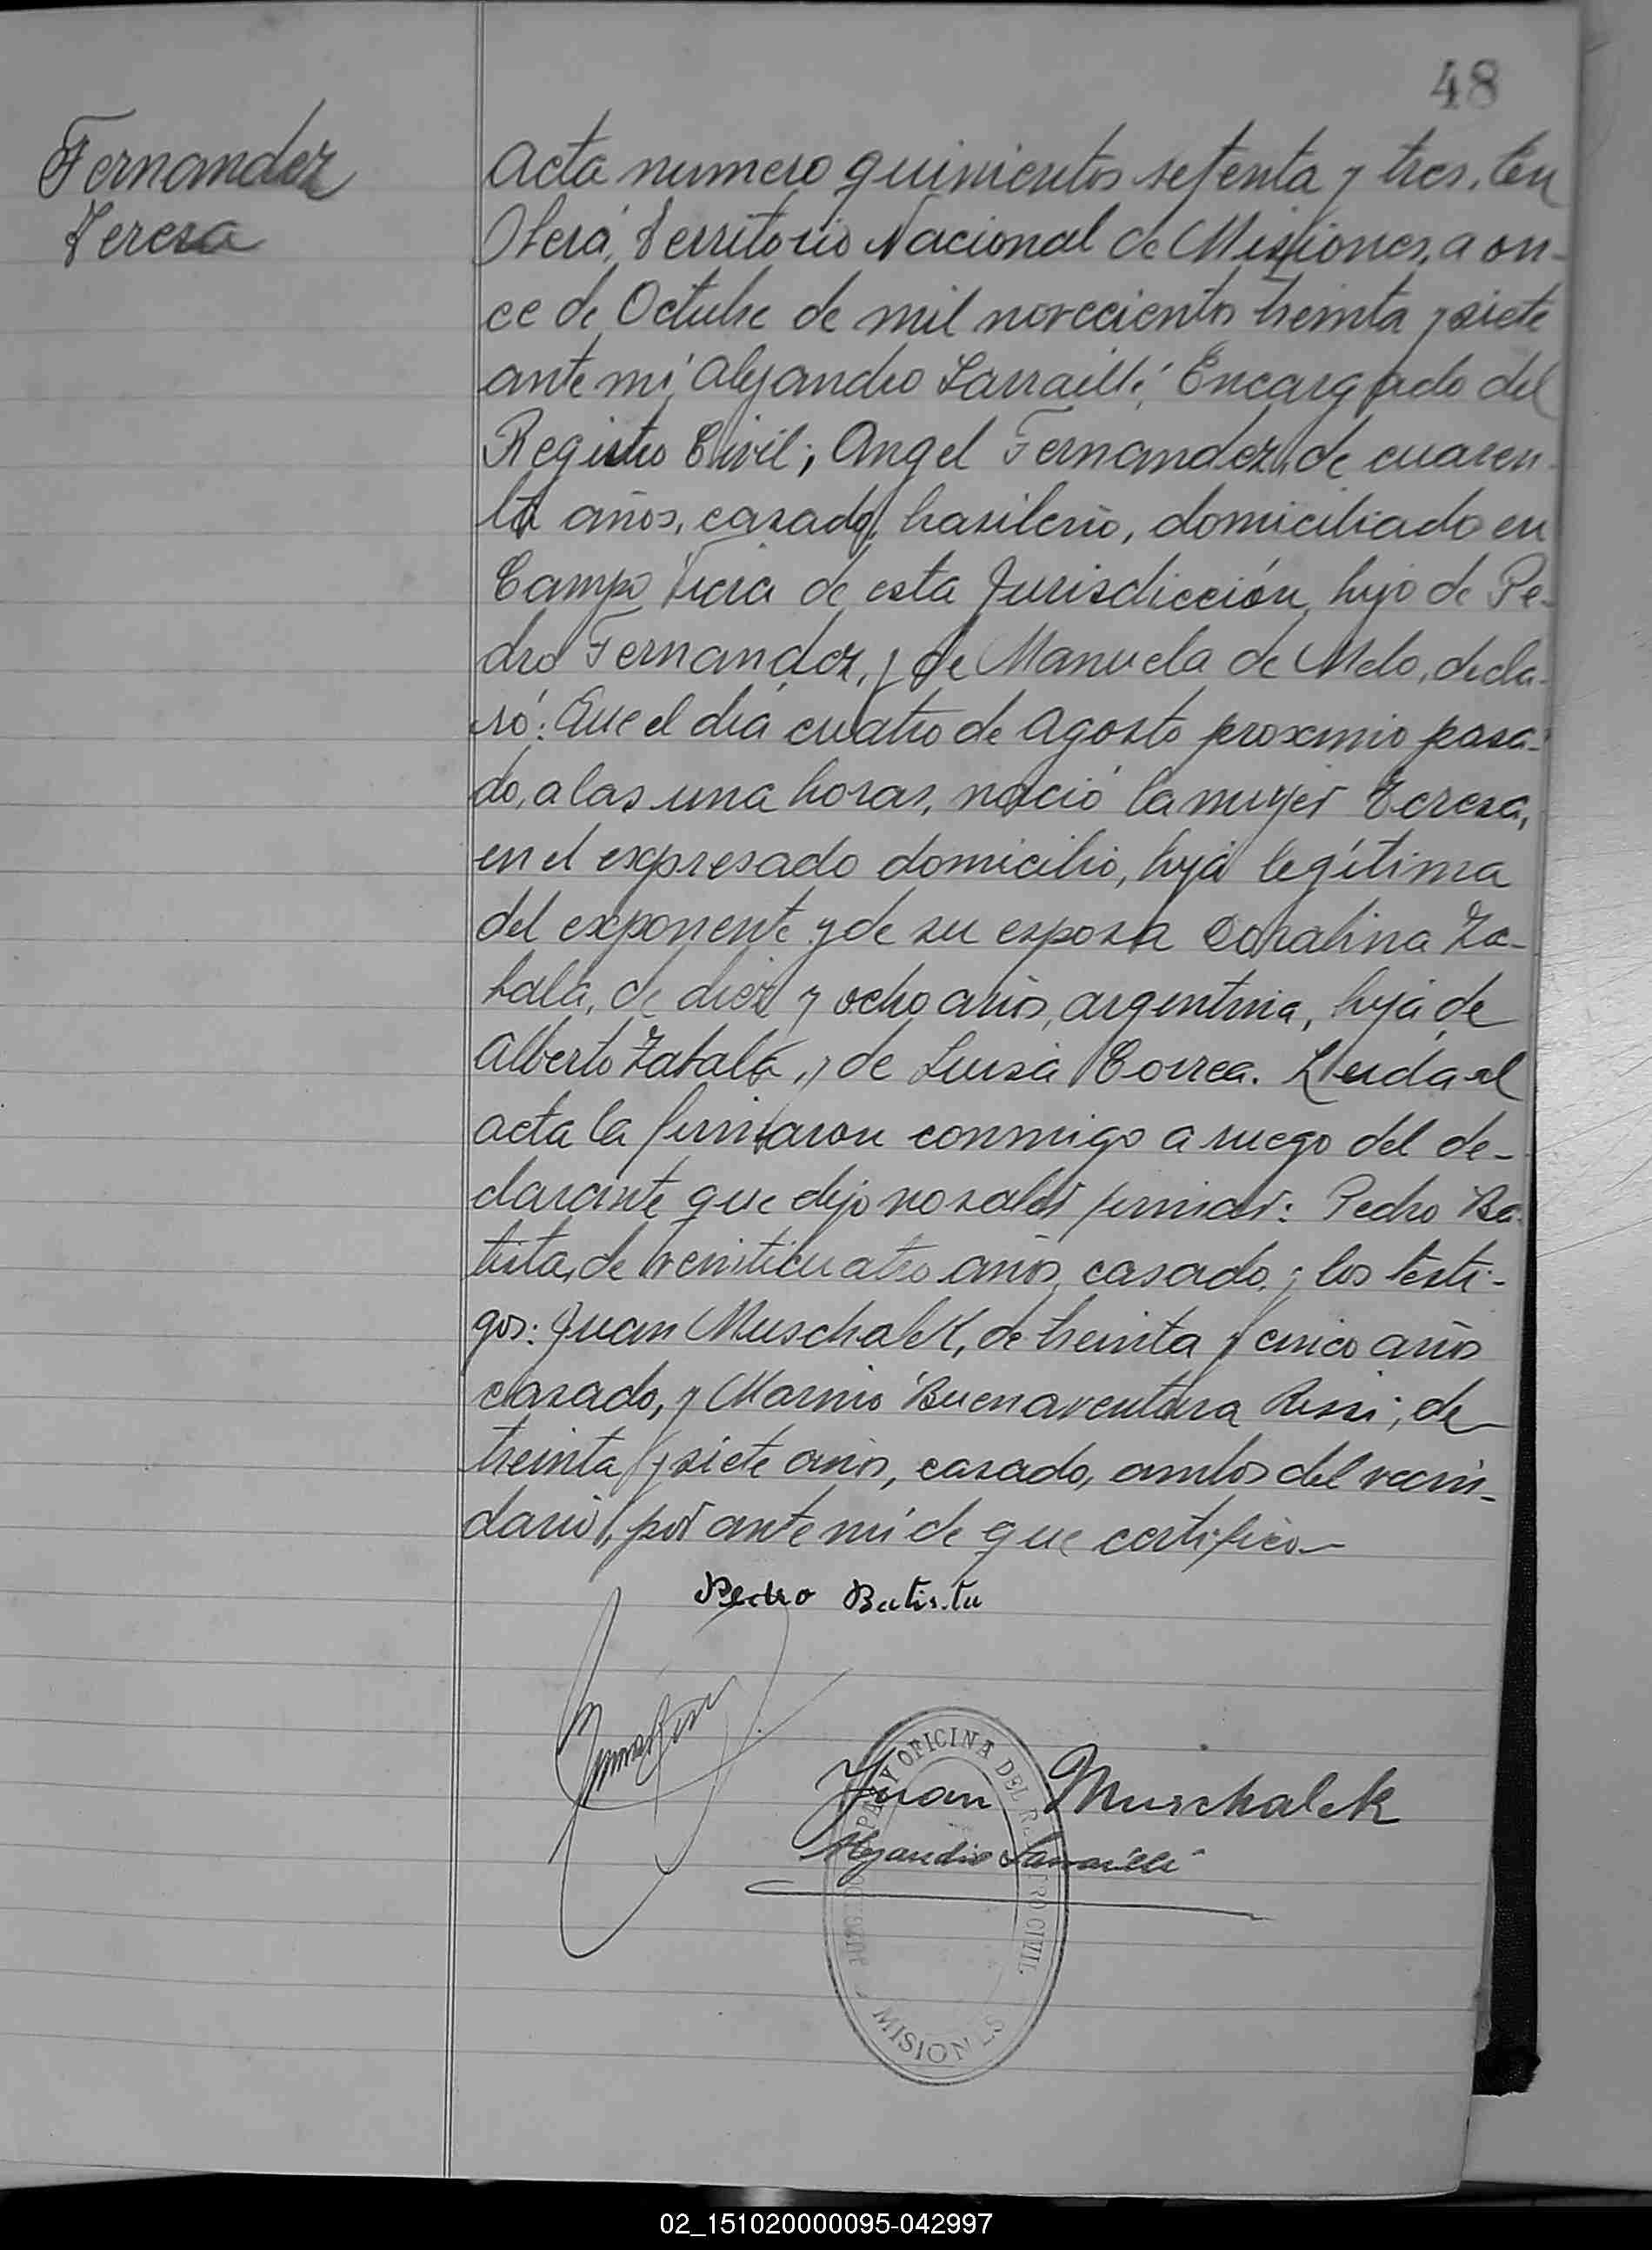 48
Fernandez
Teresa
Acta numero quinientos setenta y tres. En
Oberá, Territorio Nacional de Misiones, a on-
ce de Octubre de mil novecientos treinta y siete
ante mi, Alejandro Larraillé, Encargado del
Registro Civil; Angel Fernandez, de cuaren-
ta años, casado, brasileño, domiciliado en
Campo Viera de esta Jurisdicción, hijo de Pe-
dro Fernandez, y de Manuela de Melo, decla-
ró: Que el día cuatro de Agosto proximo pasa-
do, a las una horas, nació la mujer Teresa,
en el expresado domicilio, hija legítima
del exponente y de su esposa Coralina Za-
bala, de diez y ocho años, argentina, hija de
Alberto Zabala, y de Luisa Correa. Leida el
acta la firmaron conmigo a ruego del de-
clarante que dijo no saber firmar: Pedro Ba-
tista, de veinticuatro años, casado, y los testi-
gos: Juan Muschalek, de treinta y cinco años
casado, y Marnio Buenaventura Rissi; de
treinta y siete años, casado, ambos del vecin-
dario, por ante mí de que certifico
Pedro Batista
Juan Muschalek
Alejandro Larraillé
PAZ Y OFICINA DEL REGISTRO CIVIL
MISIONES
02_151020000095-042997